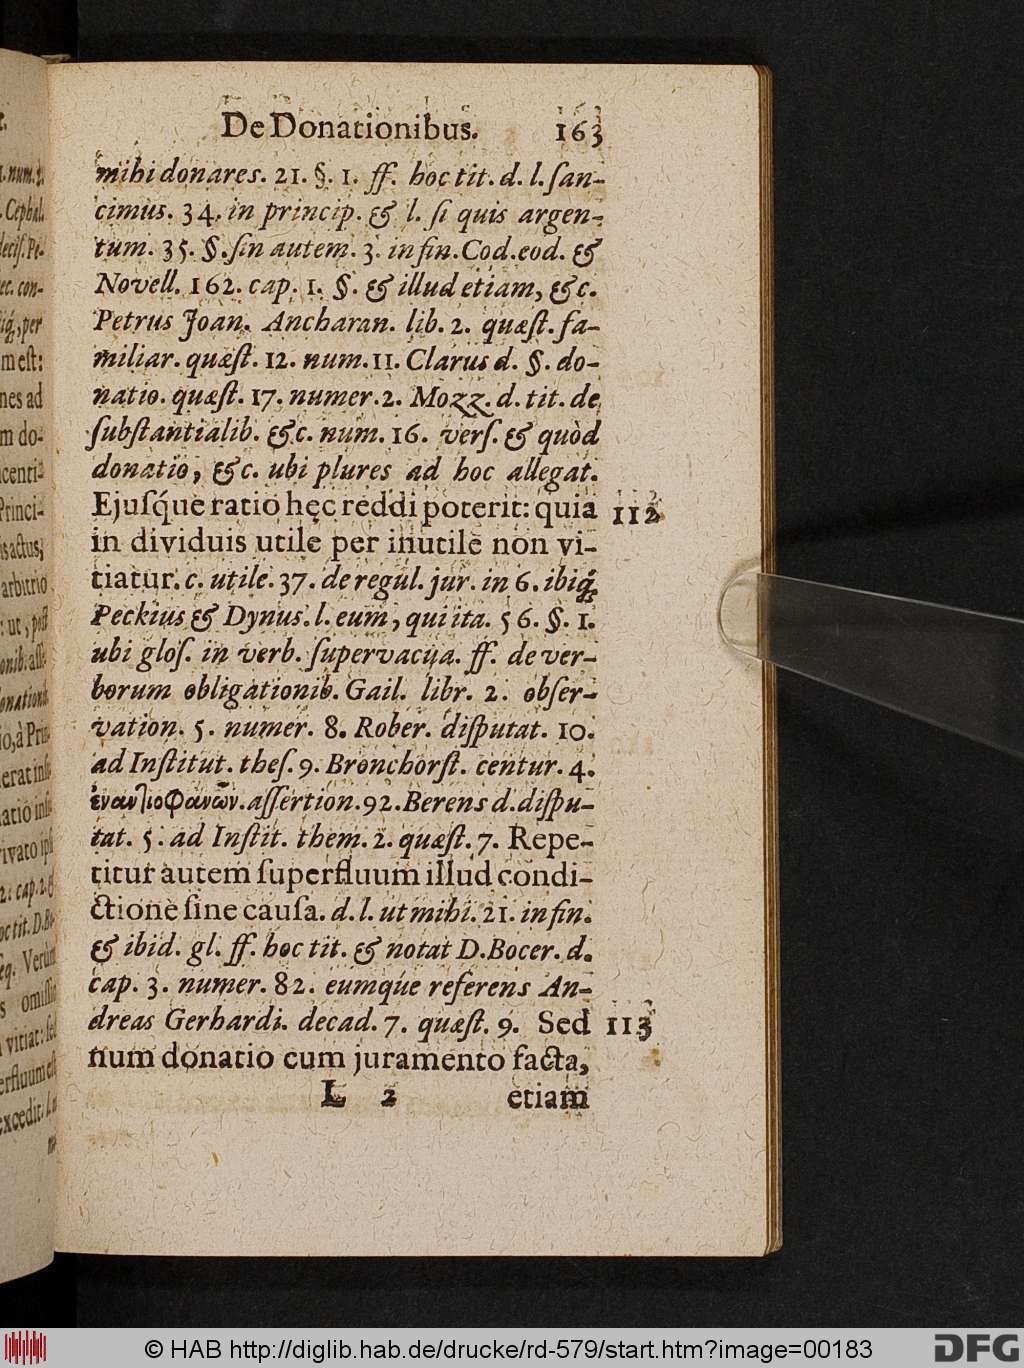 De Donationibus. 163
mihi donares. 21. §. 1. ff. hoc tit. d. l. ſan-
cimus. 34. in princip. & l. ſi quis argen-
tum. 35. §. ſin autem. 3. in fin. Cod. eod. &
Novell. 162. cap. 1. §. & illud etiam, &c.
Petrus Joan. Ancharan. lib. 2. quæſt. fa-
miliar. quæſt. 12. num. 11. Clarus d. §. do-
natio. quæſt. 17. numer. 2. Mozz. d. tit. de
ſubſtantialib. &c. num. 16. verſ. & quòd
donatio, &c. ubi plures ad hoc allegat.
Ejuſq́ue ratio hęc reddi poterit: quia 112
in dividuis utile per inutile non vi-
tiatur. c. utile. 37. de regul. jur. in 6. ibiq́;
Peckius & Dynus. l. eum, qui ita. 56. §. 1.
ubi gloſ. in verb. ſupervacua. ff. de ver-
borum obligationib. Gail. libr. 2. obſer-
vation. 5. numer. 8. Rober. diſputat. 10.
ad Inſtitut. theſ. 9. Bronchorſt. centur. 4.
ἐναντιοφανῶν. aſſertion. 92. Berens d. diſpu-
tat. 5. ad Inſtit. them. 2. quæſt. 7. Repe-
titur autem ſuperfluum illud condi-
ctione ſine cauſa. d. l. ut mihi. 21. in fin.
& ibid. gl. ff. hoc tit. & notat D. Bocer. d.
cap. 3. numer. 82. eumq́ue referens An-
dreas Gerhardi. decad. 7. quæſt. 9. Sed 113
num donatio cum juramento facta,
L 2 etiam
© HAB http://diglib.hab.de/drucke/rd-579/start.htm?image=00183
DFG